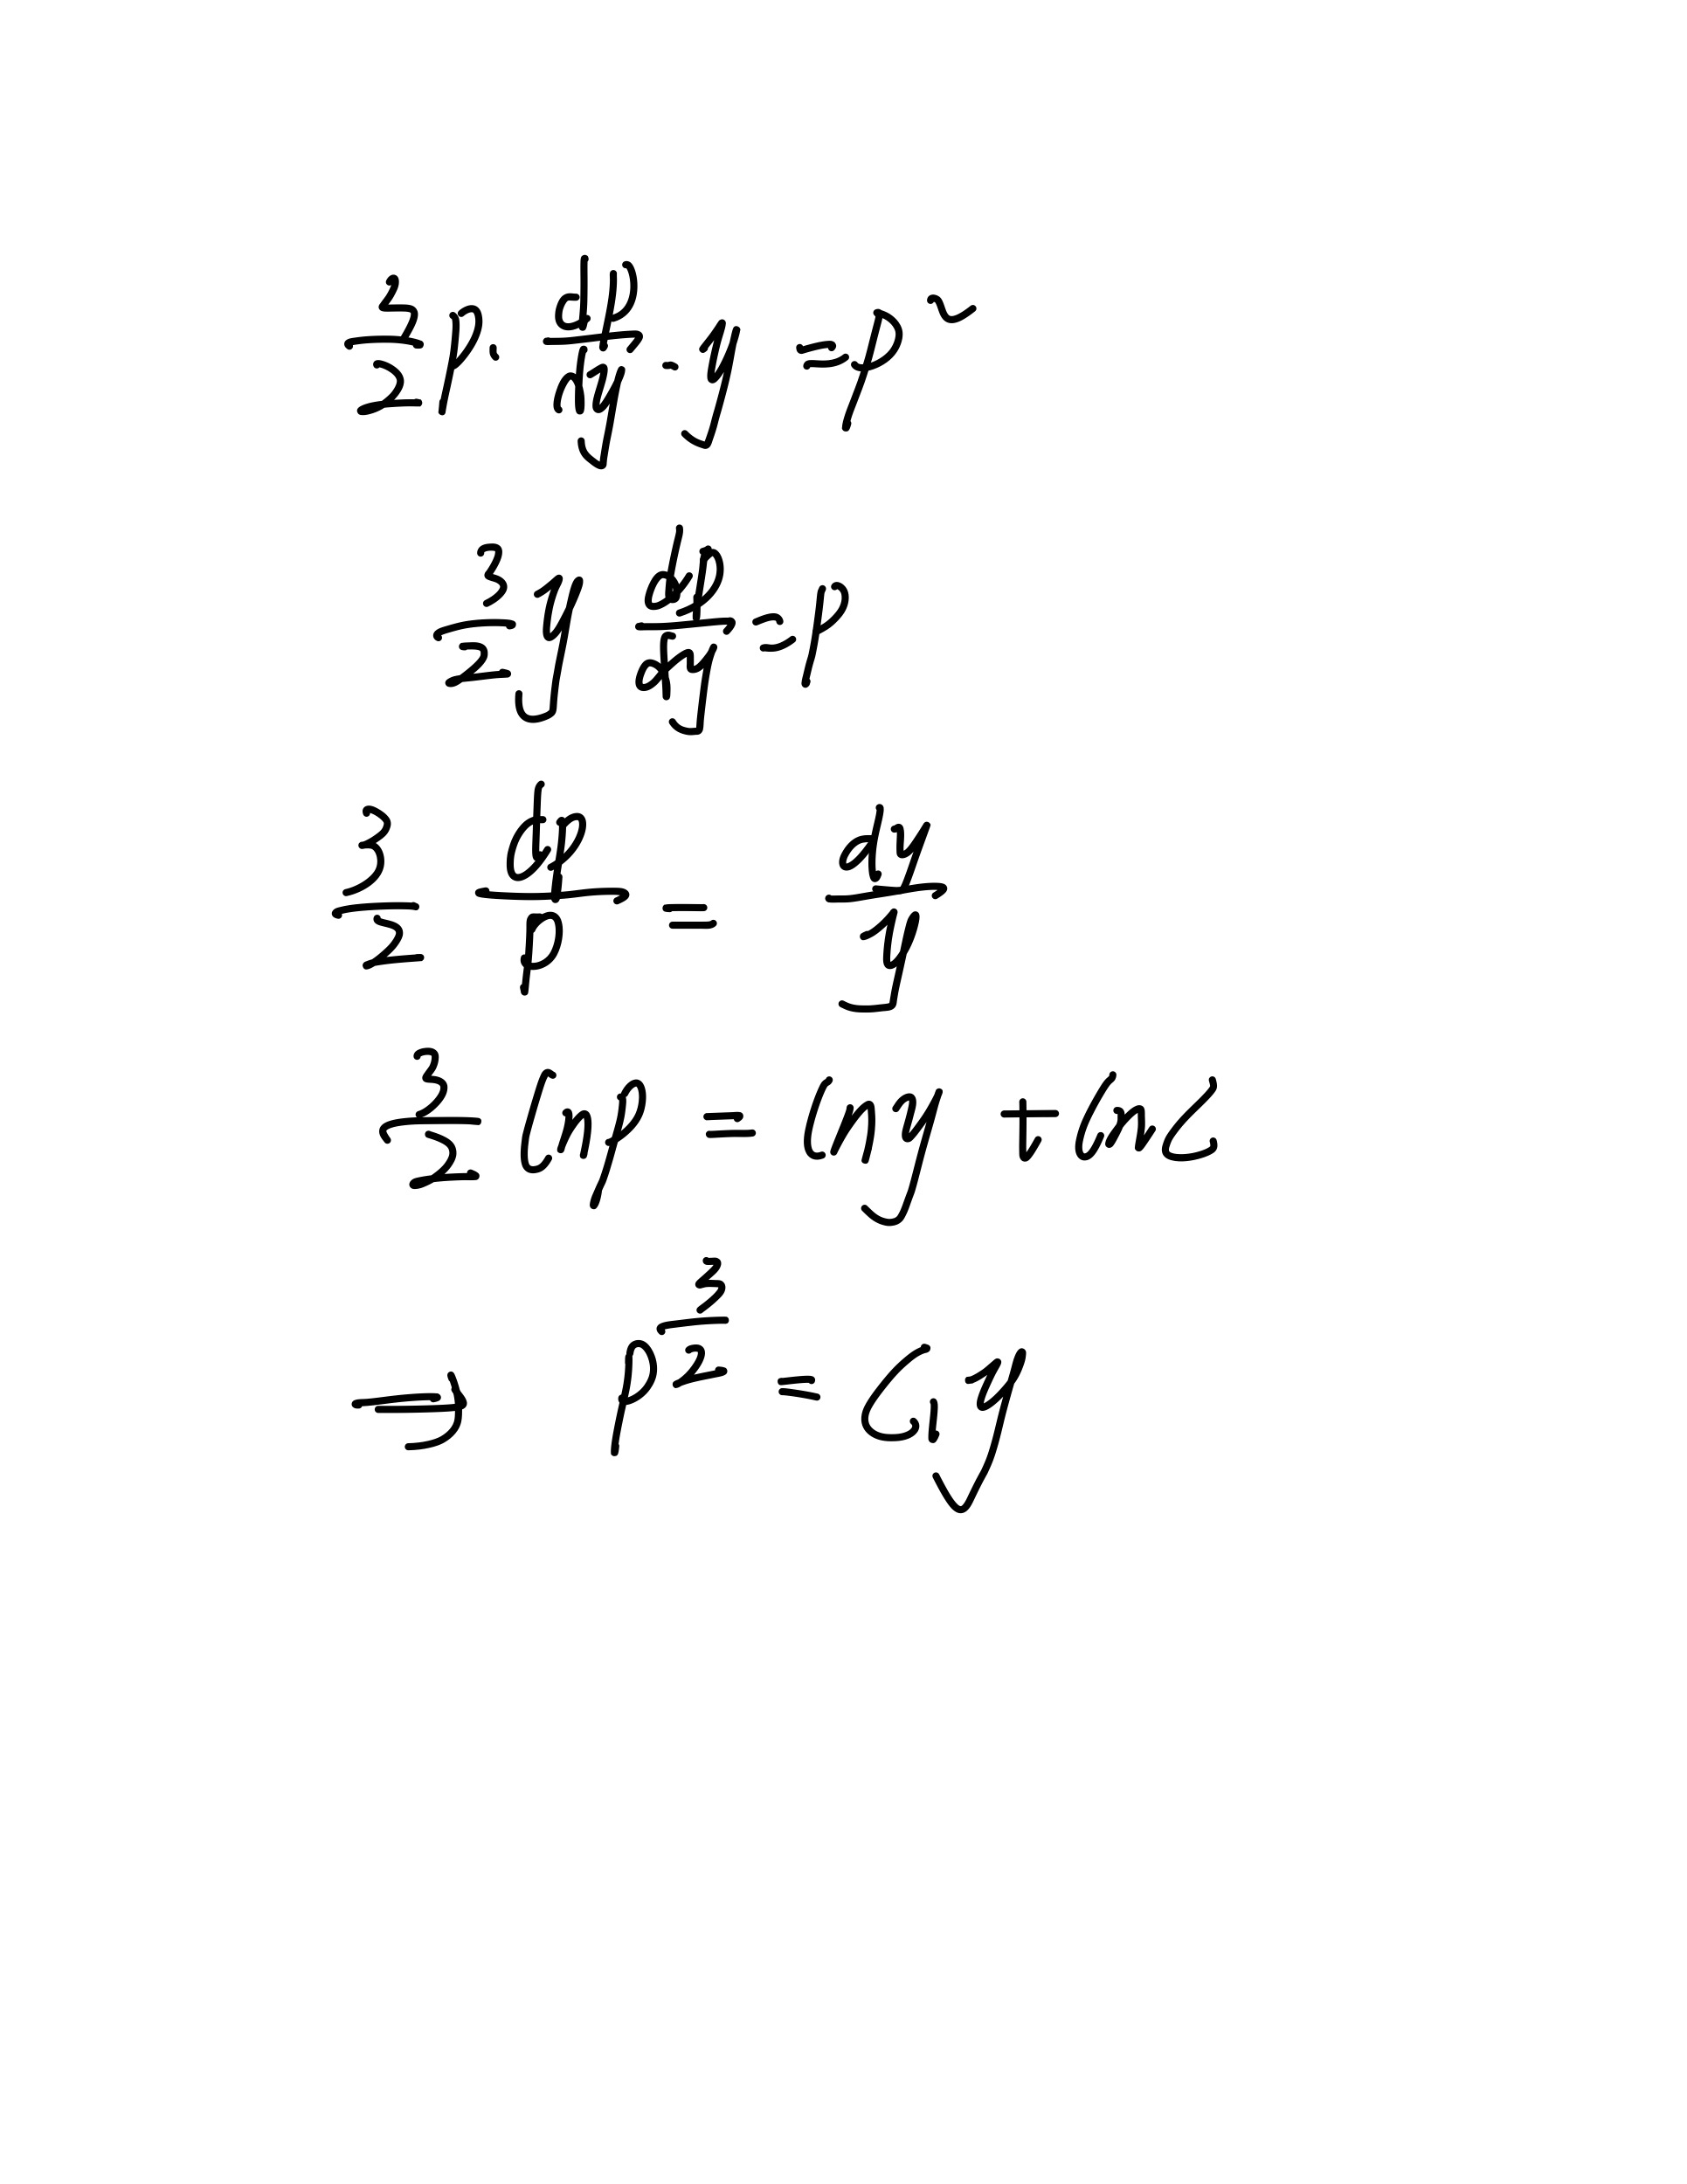 3/2 p · dp/dy · y = p²
3/2 y dp/dy = p
3/2 dp/p = dy/y
3/2 ln p = ln y + ln C
⇒ p^(3/2) = C₁ y